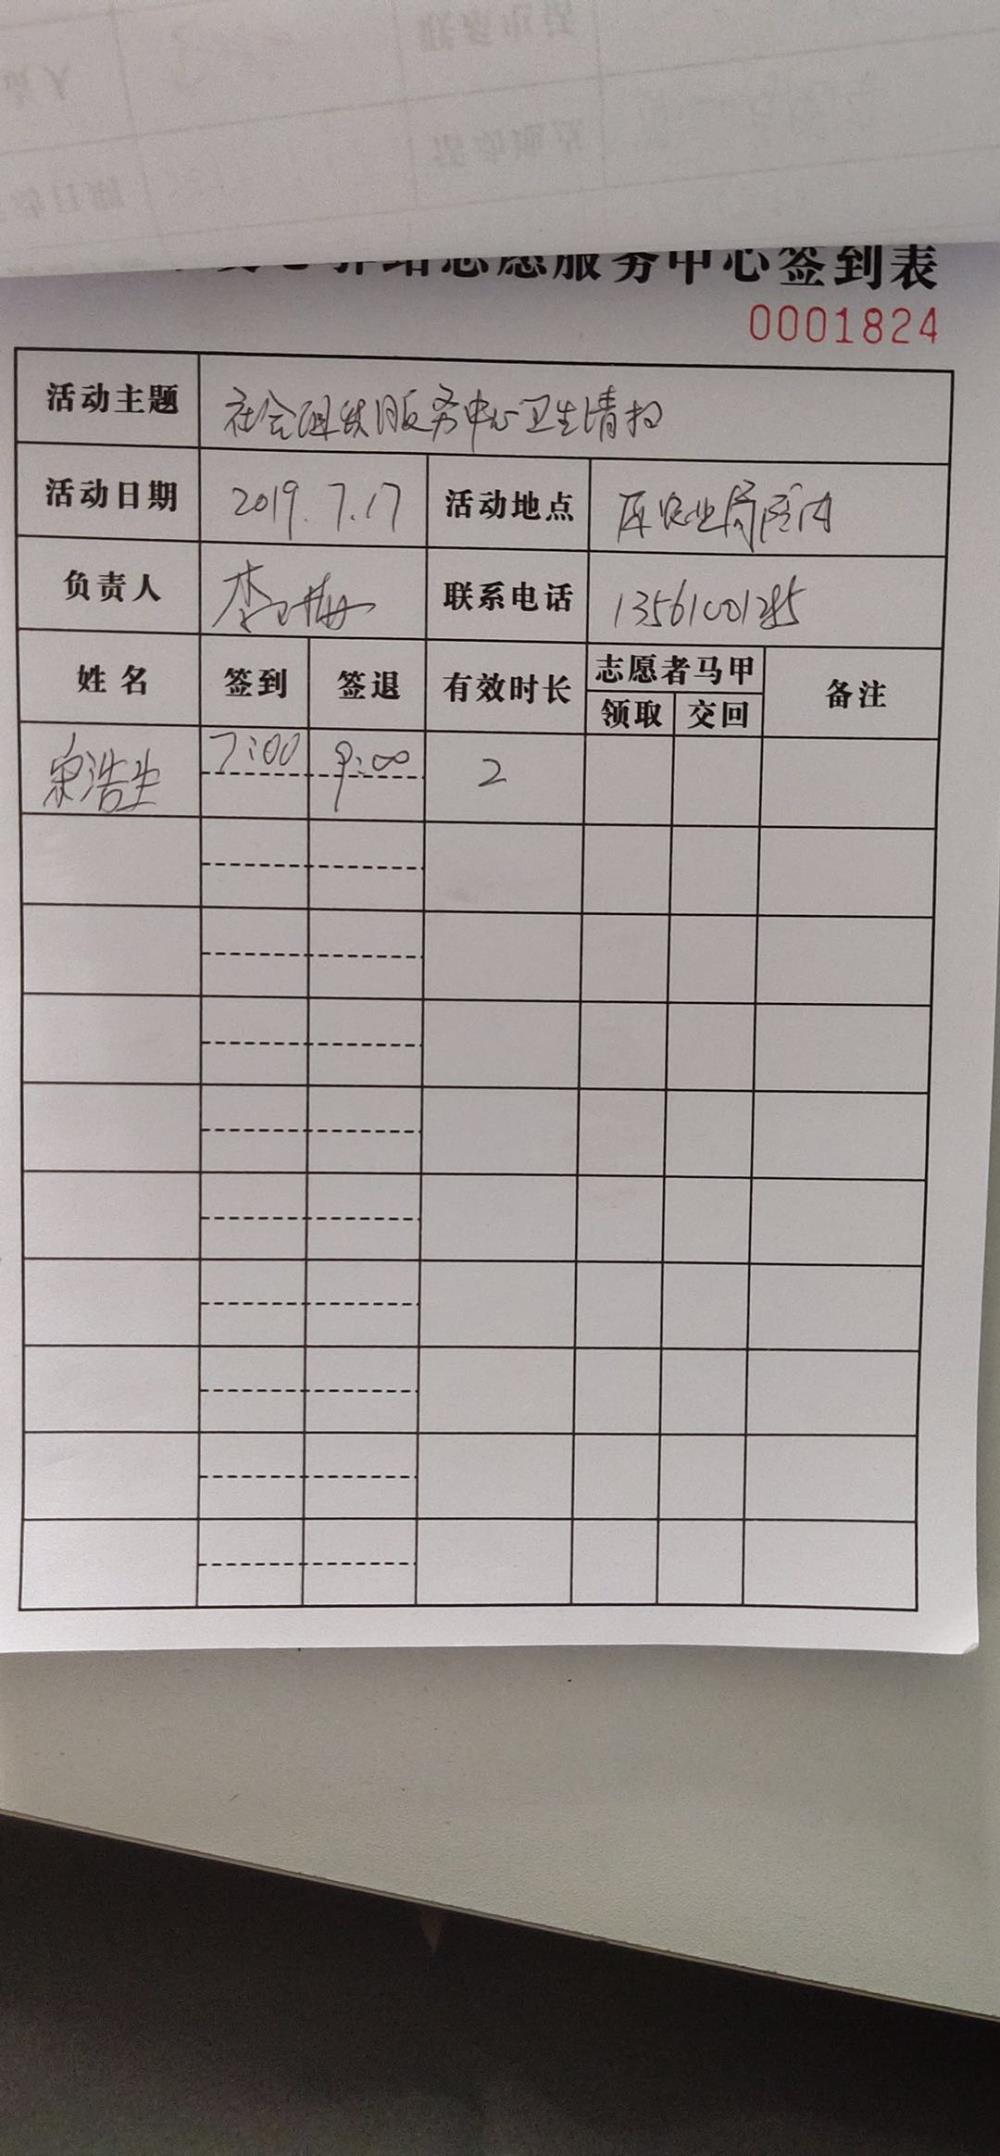 志愿服务中心签到表
0001824
活动主题 社会组织服务中心卫生清扫
活动日期 2019.7.17 活动地点 原农业局院内
负责人 李 梅 联系电话
姓名 签到 签退 有效时长 志愿者马甲 备注
领取 交回
宋浩生 7:00 9:00 2